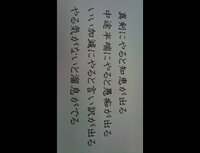 真剣にやると知恵が出る
中途半端にやると愚痴が出る
いい加減にやると言い訳が出る
やる気がないと溜息がでる